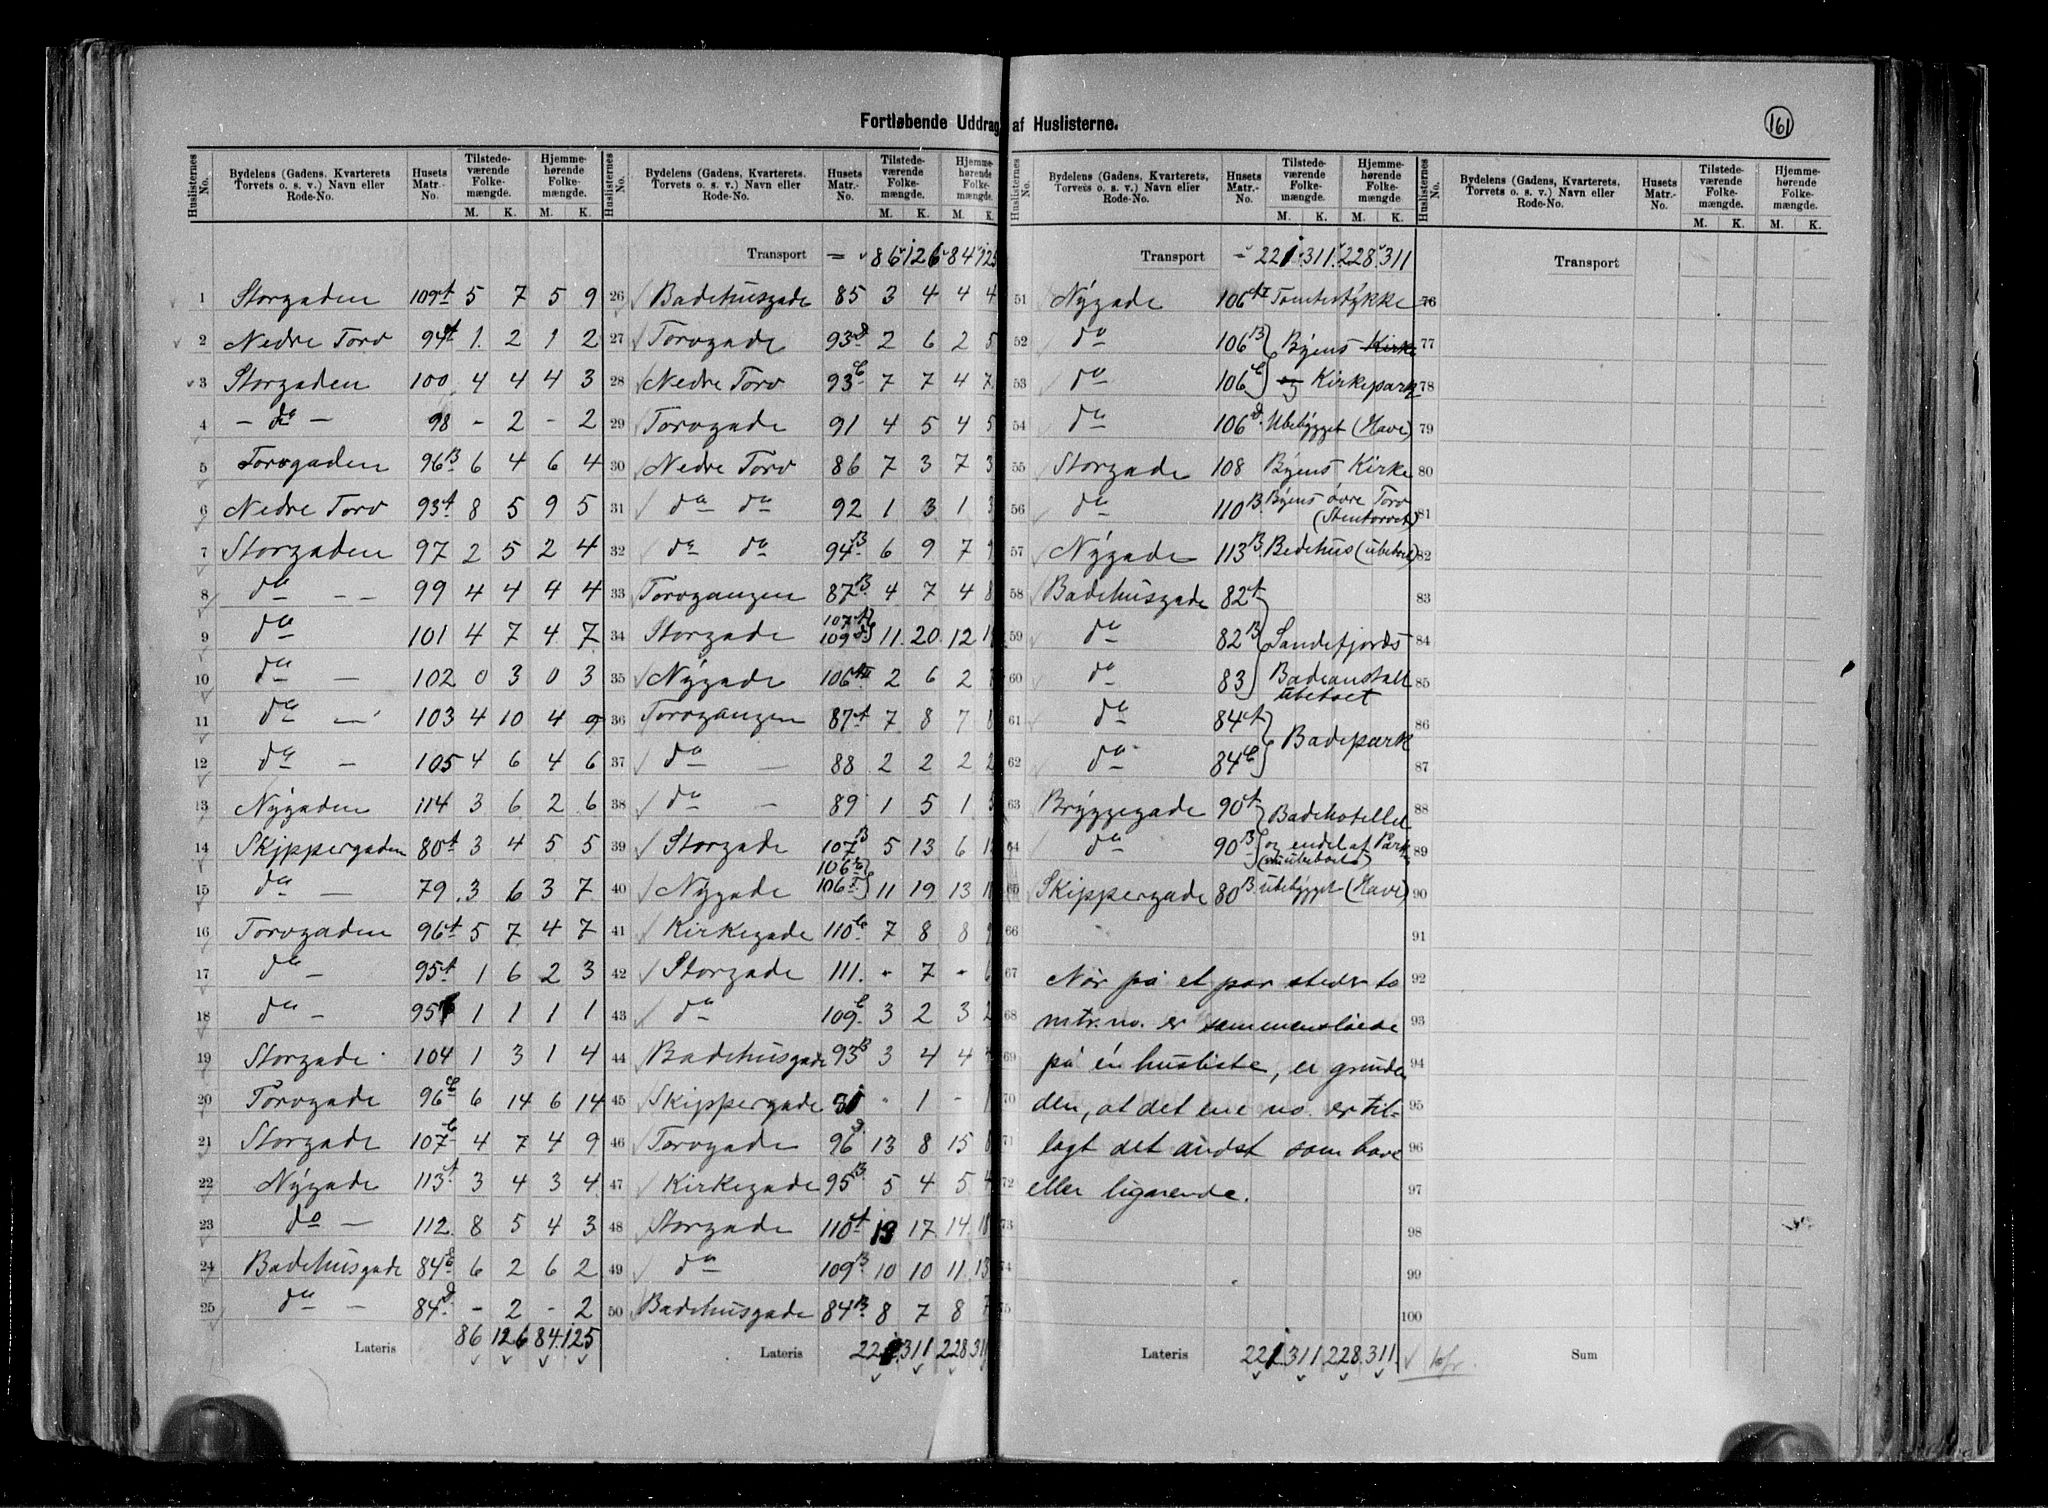 Fortløbende Uddrag af Huslisterne.
161
Huslisternes No. | Bydelens (Gadens, Kvarterets, Torvets o. s. v.) Navn eller Rode-No. | Husets Matr.-No. | Tilstedeværende Folkemængde. M. K. | Hjemmehørende Folkemængde. M. K.
1 Storgaden 109A 5 7 5 9
2 Nedre Torv 94A 1 2 1 2
3 Storgaden 100 4 4 4 3
4 - do - 98 - 2 - 2
5 Torvgaden 96B 6 4 6 4
6 Nedre Torv 93A 8 5 9 5
7 Storgaden 97 2 5 2 4
8 do - - 99 4 4 4 4
9 do 101 4 7 4 7
10 do - 102 0 3 0 3
11 do - 103 4 10 4 9
12 do - 105 4 6 4 6
13 Nygaden 114 3 6 2 6
14 Skippergaden 80A 3 4 5 5
15 do - 79 3 6 3 7
16 Torvgaden 96A 5 7 4 7
17 do - 95A 1 6 2 3
18 do - 95 1 1 1 1
19 Storgade 104 1 3 1 4
20 Torvgade 96C 6 14 6 14
21 Storgade 107C 4 7 4 9
22 Nygade 113A 3 4 3 4
23 do - 112 8 5 4 3
24 Badehusgade 84 6 2 6 2
25 do - 84D - 2 - 2
Lateris 86 126 84 125
Huslisternes No. | Bydelens (Gadens, Kvarterets, Torvets o. s. v.) Navn eller Rode-No. | Husets Matr.-No. | Tilstedeværende Folkemængde. M. K. | Hjemmehørende Folkemængde. M. K.
Transport = 86 126 84 125
26 Badehusgade 85 3 4 4 4
27 Torvgade 93D 2 6 2 5
28 Nedre Torv 93C 7 7 4 7
29 Torvgade 91 4 5 4 5
30 Nedre Torv 86 7 3 7 3
31 do do 92 1 3 1 3
32 do do 94B 6 9 7 9
33 Torvgangen 87B 4 7 4 8
34 Storgade 107A 109D 11 20 12
35 Nygade 106 2 6 2
36 Torvgangen 87A 7 8 7 8
37 do - 88 2 2 2 2
38 do - 89 1 5 1
39 Storgade 107B 5 13 6
40 Nygade 106 106 11 19 13
41 Kirkegade 110C 7 8 8
42 Storgade 111 - 7 - 6
43 do 109C 3 2 3 2
44 Badehusgade 93B 3 4 4
45 Skippergade - 1 - 1
46 Torvgade 96D 13 8 15 8
47 Kirkegade 95B 5 4 5 4
48 Storgade 110A 13 17 14 18
49 do 109B 10 10 11 13
50 Badehusgade 84B 8 7 8 7
Lateris 221 311 228 311
Huslisternes No. | Bydelens (Gadens, Kvarterets, Torvets o. s. v.) Navn eller Rode-No. | Husets Matr.-No. | Tilstedeværende Folkemængde. M. K. | Hjemmehørende Folkemængde. M. K.
Transport = 221 311 228 311
51 Nygade 106 Tomtestykke
52 do 106B Byens Kirke
53 do 106C og Kirkepark
54 do 106D Ubebygget (Have)
55 Storgade 108 Byens Kirke
56 do 110B Byens øvre Torv (Stentorvet)
57 Nygade 113B Bedehus (ubeboet)
58 Badehusgade 82A
59 do 82B Sandefjords
60 do 83 Badeanstalt ubeboet
61 do 84A
62 do 84C Badepark
63 Bryggegade 90A Badehotellet
64 do 90B og endel af Park (ubeboet)
65 Skippergade 80B ubebygget (Have)
66
67 Når på et par steder to
68 mtr.no. er sammenslåede
69 på én husliste, er grunden
70 den, at det ene no. er til-
71 lagt det andet som have
72 eller lignende.
73
74
75
Lateris 221 311 228 311
Huslisternes No. | Bydelens (Gadens, Kvarterets, Torvets o. s. v.) Navn eller Rode-No. | Husets Matr.-No. | Tilstedeværende Folkemængde. M. K. | Hjemmehørende Folkemængde. M. K.
Transport
76
77
78
79
80
81
82
83
84
85
86
87
88
89
90
91
92
93
94
95
96
97
98
99
100
Sum